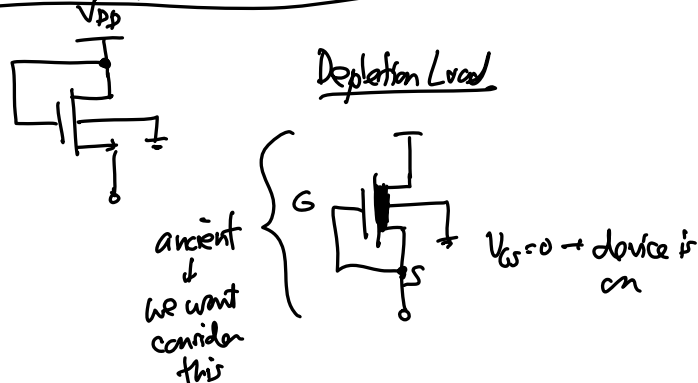 VDD
Depletion Load
G
S
ancient
↓
we want
consider
this
VGS=0 → device is
on